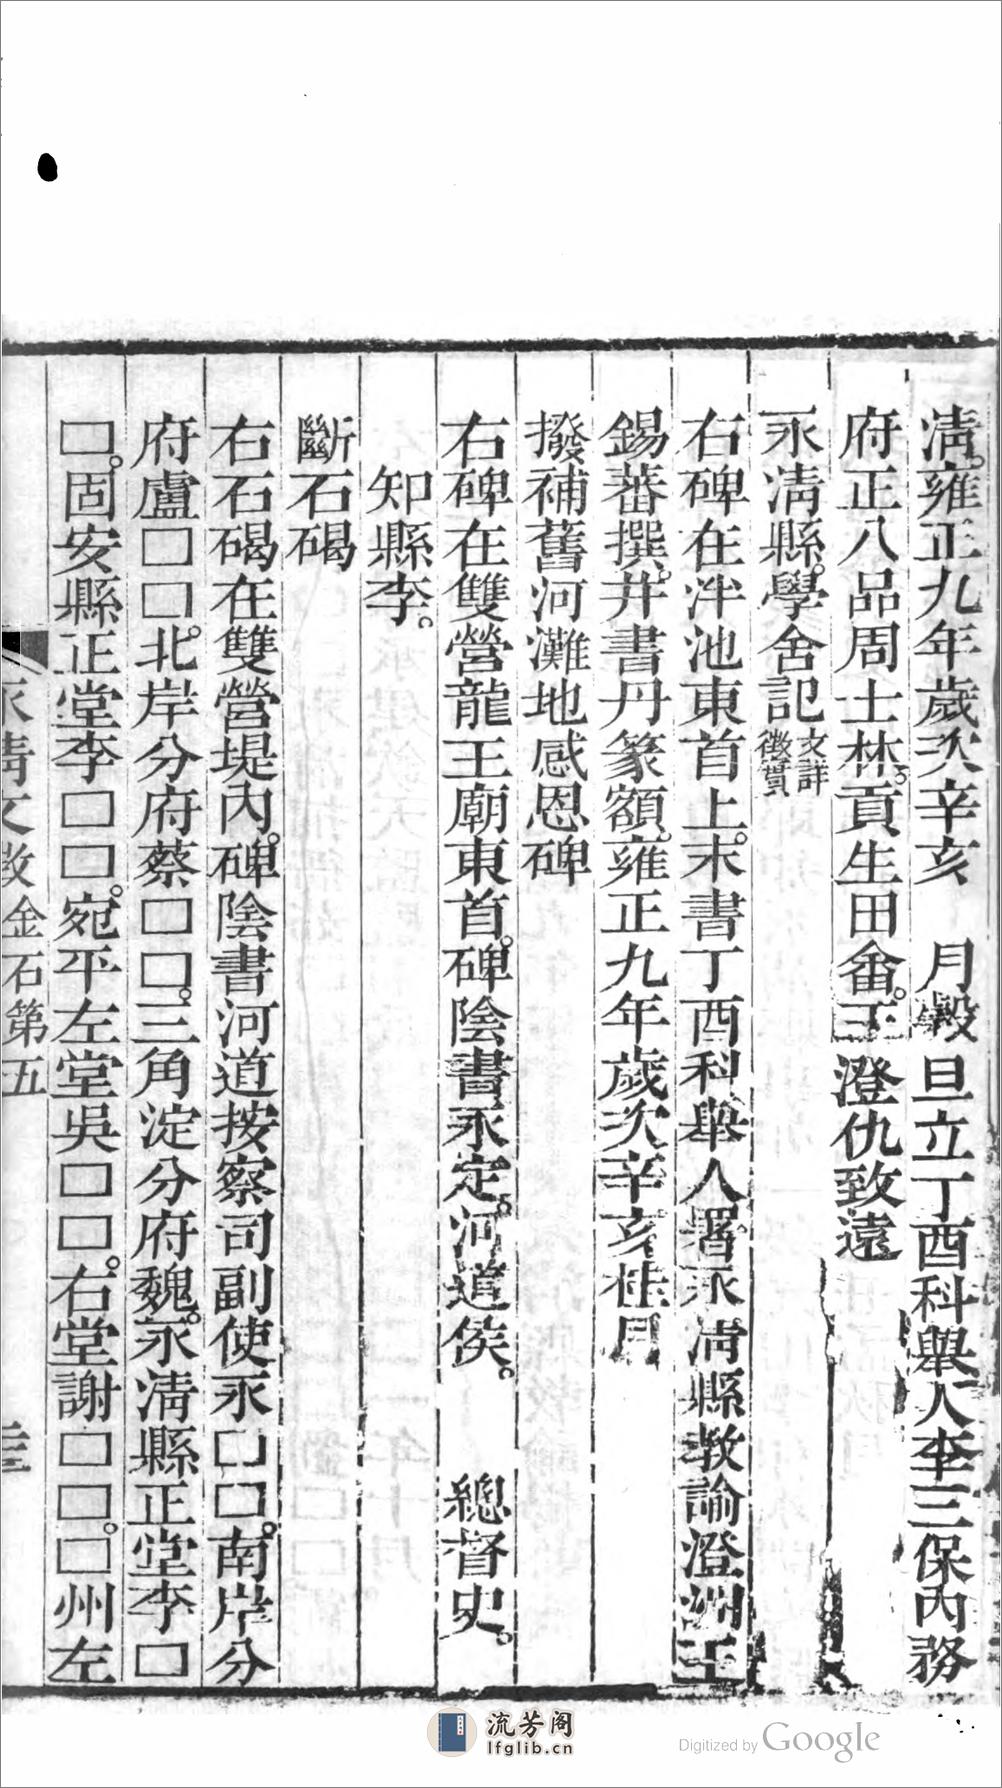 清。雍正九年歲次辛亥　月穀旦立丁酉科舉人李三保內務
府正八品周士林。貢生田畬。王澄仇致遠
永清縣。學舍記文詳徵實
右碑在泮池東首上。末書丁酉科舉人署永清縣教諭澄洲王
錫蕃撰。幷書丹篆額。雍正九年歲次辛亥桂月
撥補舊河灘地感恩碑
右碑在雙營龍王廟東首。碑陰書永定。河道侯。　總督史。
知縣李。
斷石碣
右石碣在雙營堤內。碑陰書河道按察司副使永□□。南岸分
府盧□□。北岸分府蔡□□。三角淀分府魏。永清縣正堂李□
□。固安縣正堂李□□。宛平左堂吳□□。右堂謝□□。□州左
永清文徵金石第五
流芳阁
lfglib.cn
Digitized by Google